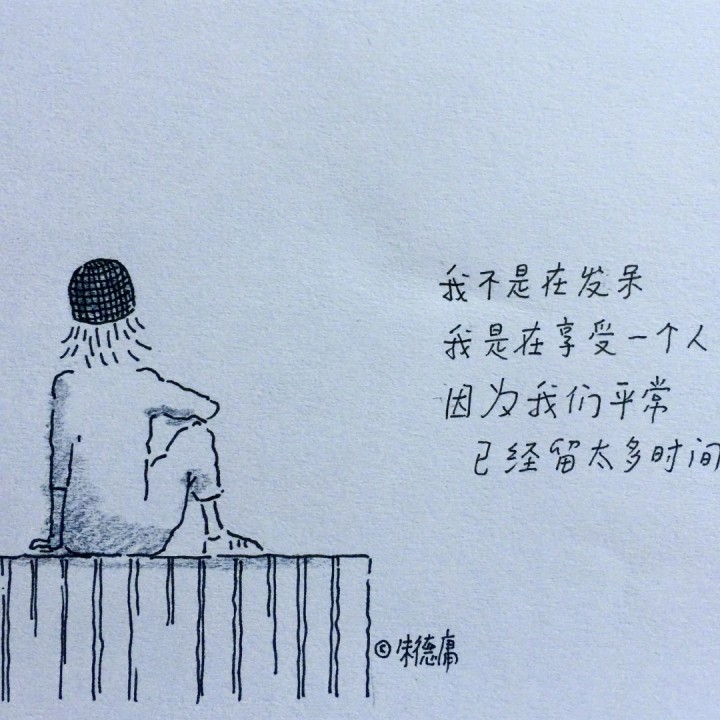 我不是在发呆
我是在享受一个人
因为我们平常
已经留太多时间
©朱德庸